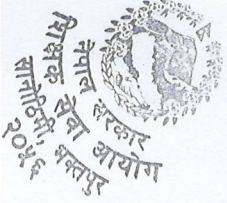 नेपाल सरकार
शिक्षक सेवा आयोग
सानोठिमी भक्तपुर
२०५६